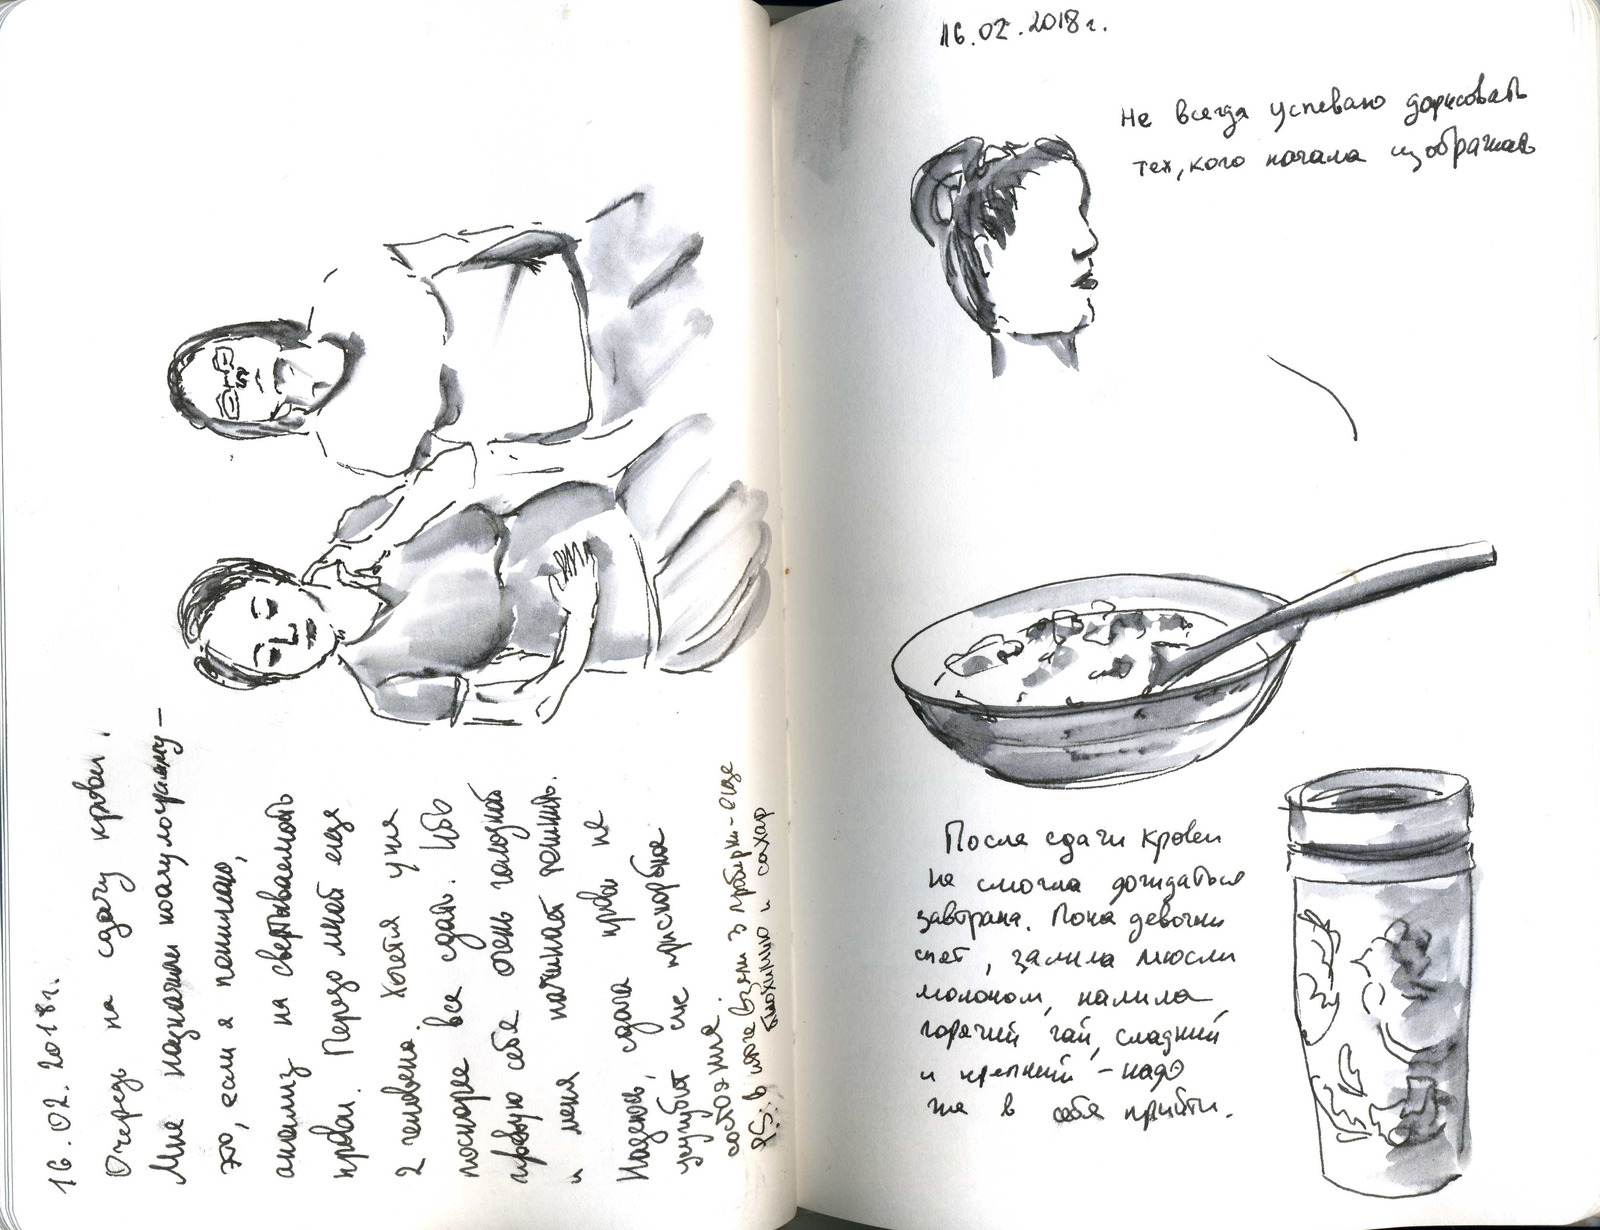 16.02.2018г.
Очередь на сдачу крови.
Мне назначили коагулограмму –
это, если я понимаю,
анализ на свертываемость
крови. Передо мной еще
2 человека. Хочется уже
поскорее все сдать. Ибо
чувствую себя очень голодной
и меня начинает тошнить.
Надеюсь, сдача крови не
усугубит сие прискорбное
состояние.
PS: в итоге взяли 3 пробирки - еще
биохимию и сахар
16.02.2018г.
Не всегда успеваю дорисовать
тех, кого начала изображать
После сдачи крови
не смогла дождаться
завтрака. Пока девочки
спят, залила мюсли
молоком, налила
горячий чай, сладкий
и крепкий – надо
же в себя прийти.